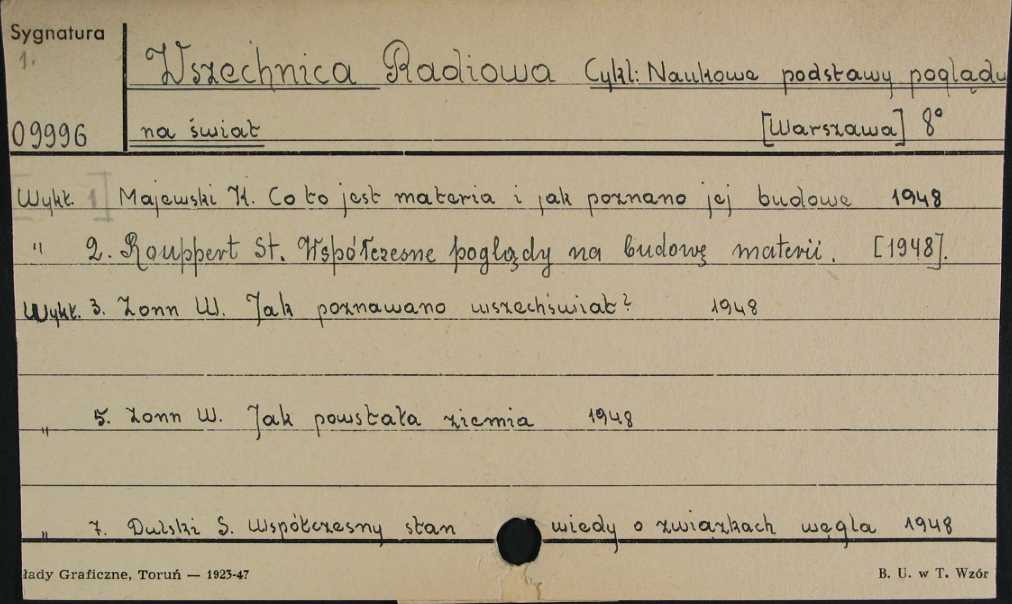 Sygnatura
1.
Wszechnica Radiowa Cykl: Naukowe podstawy poglądu
09996 na świat [Warszawa] 8°
Wykł. 1] Majewski K. Co to jest materia i jak poznano jej budowę 1948
" 2. Rouppert St. Współczesne poglądy na budowę materii. [1948].
Wykł. 3. Zonn W. Jak poznawano wszechświat? 1948
" 5. Zonn W. Jak powstała ziemia 1948
" 7. Dulski S. Współczesny stan wiedy o związkach węgla 1948
łady Graficzne, Toruń — 1923-47 B. U. w T. Wzór